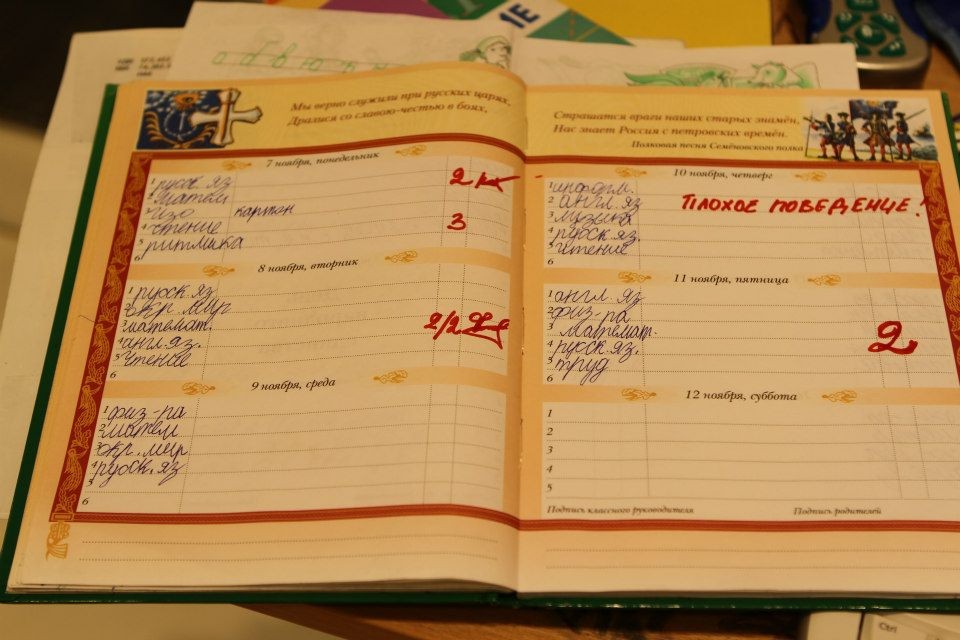 1Е
Мы верно служили при русских царях,
Дралися со славою-честью в боях,
7 ноября, понедельник
1 русск. яз 2
2 матем
3 изо картон
4 чтение 3
5 ритмика
6
8 ноября, вторник
1 русск. яз
2 окр. мир
3 математ. 2/2
4 англ. яз.
5 чтение
6
9 ноября, среда
1 физ-ра
2 матем
3 окр. мир
4 русск. яз
5
6
Страшатся враги наших старых знамён,
Нас знает Россия с петровских времён.
Полковая песня Семёновского полка
10 ноября, четверг
1 информ.
2 англ. яз ПЛОХОЕ ПОВЕДЕНИЕ!
3 музыка
4 русск. яз.
5 чтение
6
11 ноября, пятница
1 англ. яз
2 физ-ра
3 математ.
4 русск. яз. 2
5 труд
6
12 ноября, суббота
1
2
3
4
5
Подпись классного руководителя Подпись родителей
Ctrl